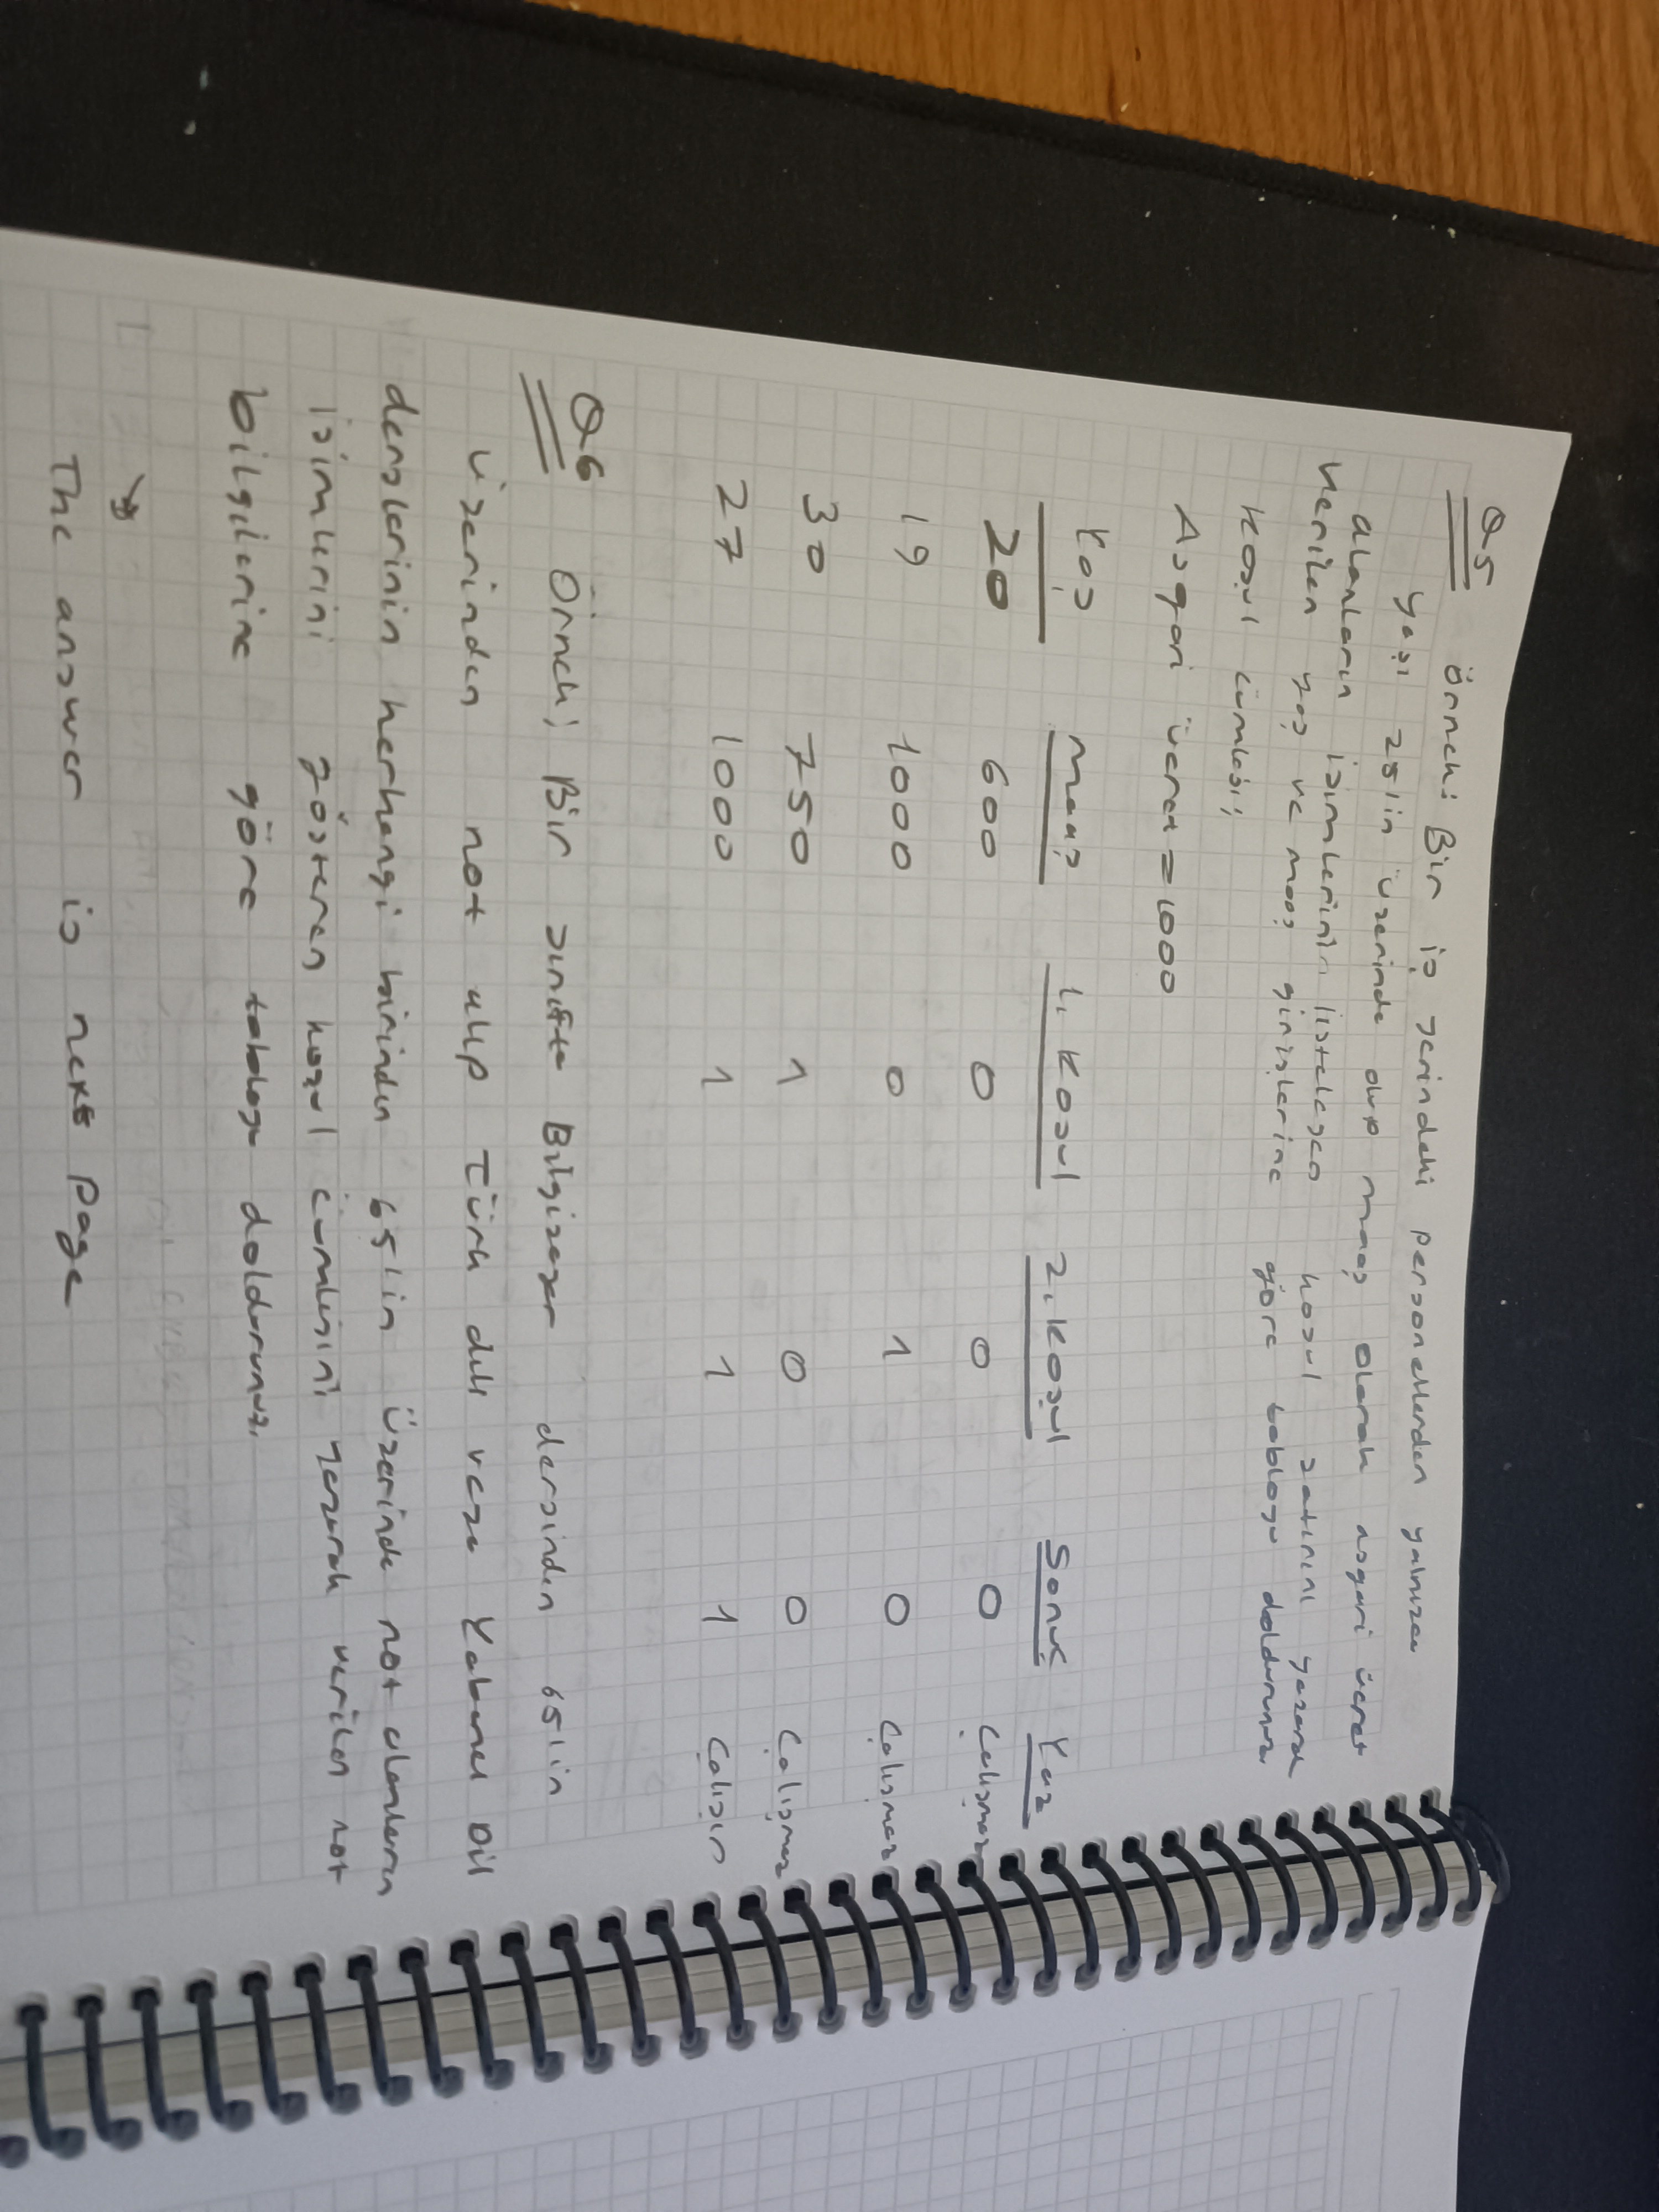 Q5 Örnek: Bir iş yerindeki personellerden yalnızca
yaşı 25'in üzerinde olup maaş olarak asgari ücret
alanların isimlerini listeleyen koşul satırını yazarak
verilen yaş ve maaş girişlerine göre tabloyu doldurunuz.
Koşul cümlesi;
Asgari ücret = 1000
Yaş Maaş 1. Koşul 2. Koşul Sonuç Yaz
20 600 0 0 0 Çalışmaz
19 1000 0 1 0 Çalışmaz
30 750 1 0 0 Çalışmaz
27 1000 1 1 1 Çalışır
Q6 Örnek; Bir sınıfta Bilgisayar dersinden 65'in
üzerinden not alıp Türk dili veya Yabancı Dil
derslerinin herhangi birinden 65'in üzerinde not alanların
isimlerini gösteren koşul cümlesini yazarak verilen not
bilgilerine göre tabloyu doldurunuz.
The answer is next page